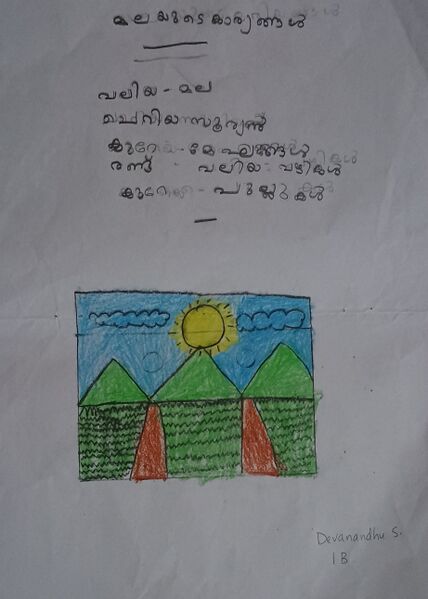 മലയുടെ കാര്യങ്ങൾ
വലിയ - മല
ചെറിയ സൂര്യൻ
കുറേ - മേഘങ്ങൾ
രണ്ട് - വലിയ വഴികൾ
കുറേ - പുല്ലുകൾ
Devanandhu S.
1B